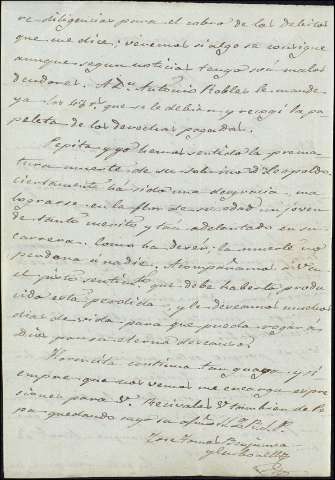 se diligencias para el cobro de los debitos
que me dice; veremos si algo se consigue
aunque segun noticias tengo son malos
deudores. A Dn. Antonio Robles le mande
ya los que se le debian y recogi la pa-
peleta de los derechos pagados.
Pepita y yo hemos sentido la prema-
tura muerte de su sobrino Dn. Leopoldo
ciertamente ha sido una desgracia ma-
lograrse en la flor de su edad un joven
de tanto merito y tan adelantado en su
carrera. Como ha de ser: la muerte no
perdona a nadie. Acompañamos a V. en
el justo sentimto. que debe haberle produ-
cido esta perdida, y le deseamos muchos
dias de vida para que pueda rogar a
Dios por su eterno descanso.
continua tan guapa, y si
empre que nos vemos me encarga espre-
siones para V. Recivalas V. tambien de Pe-
pa quedando suyo
Jose Tomas